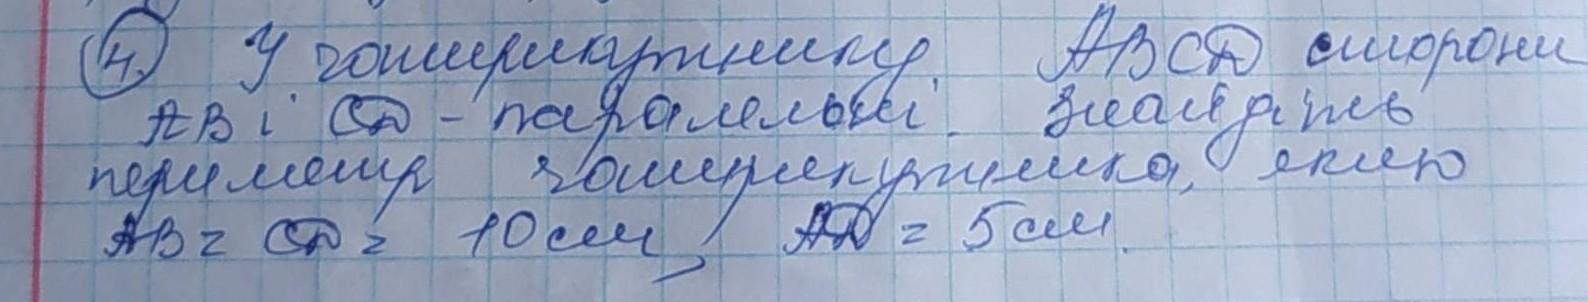 4. У чотирикутнику ABCD сторони
AB і CD - паралельні. Знайдіть
периметр чотирикутника, якщо
AB = CD = 10 см, AD = 5 см.